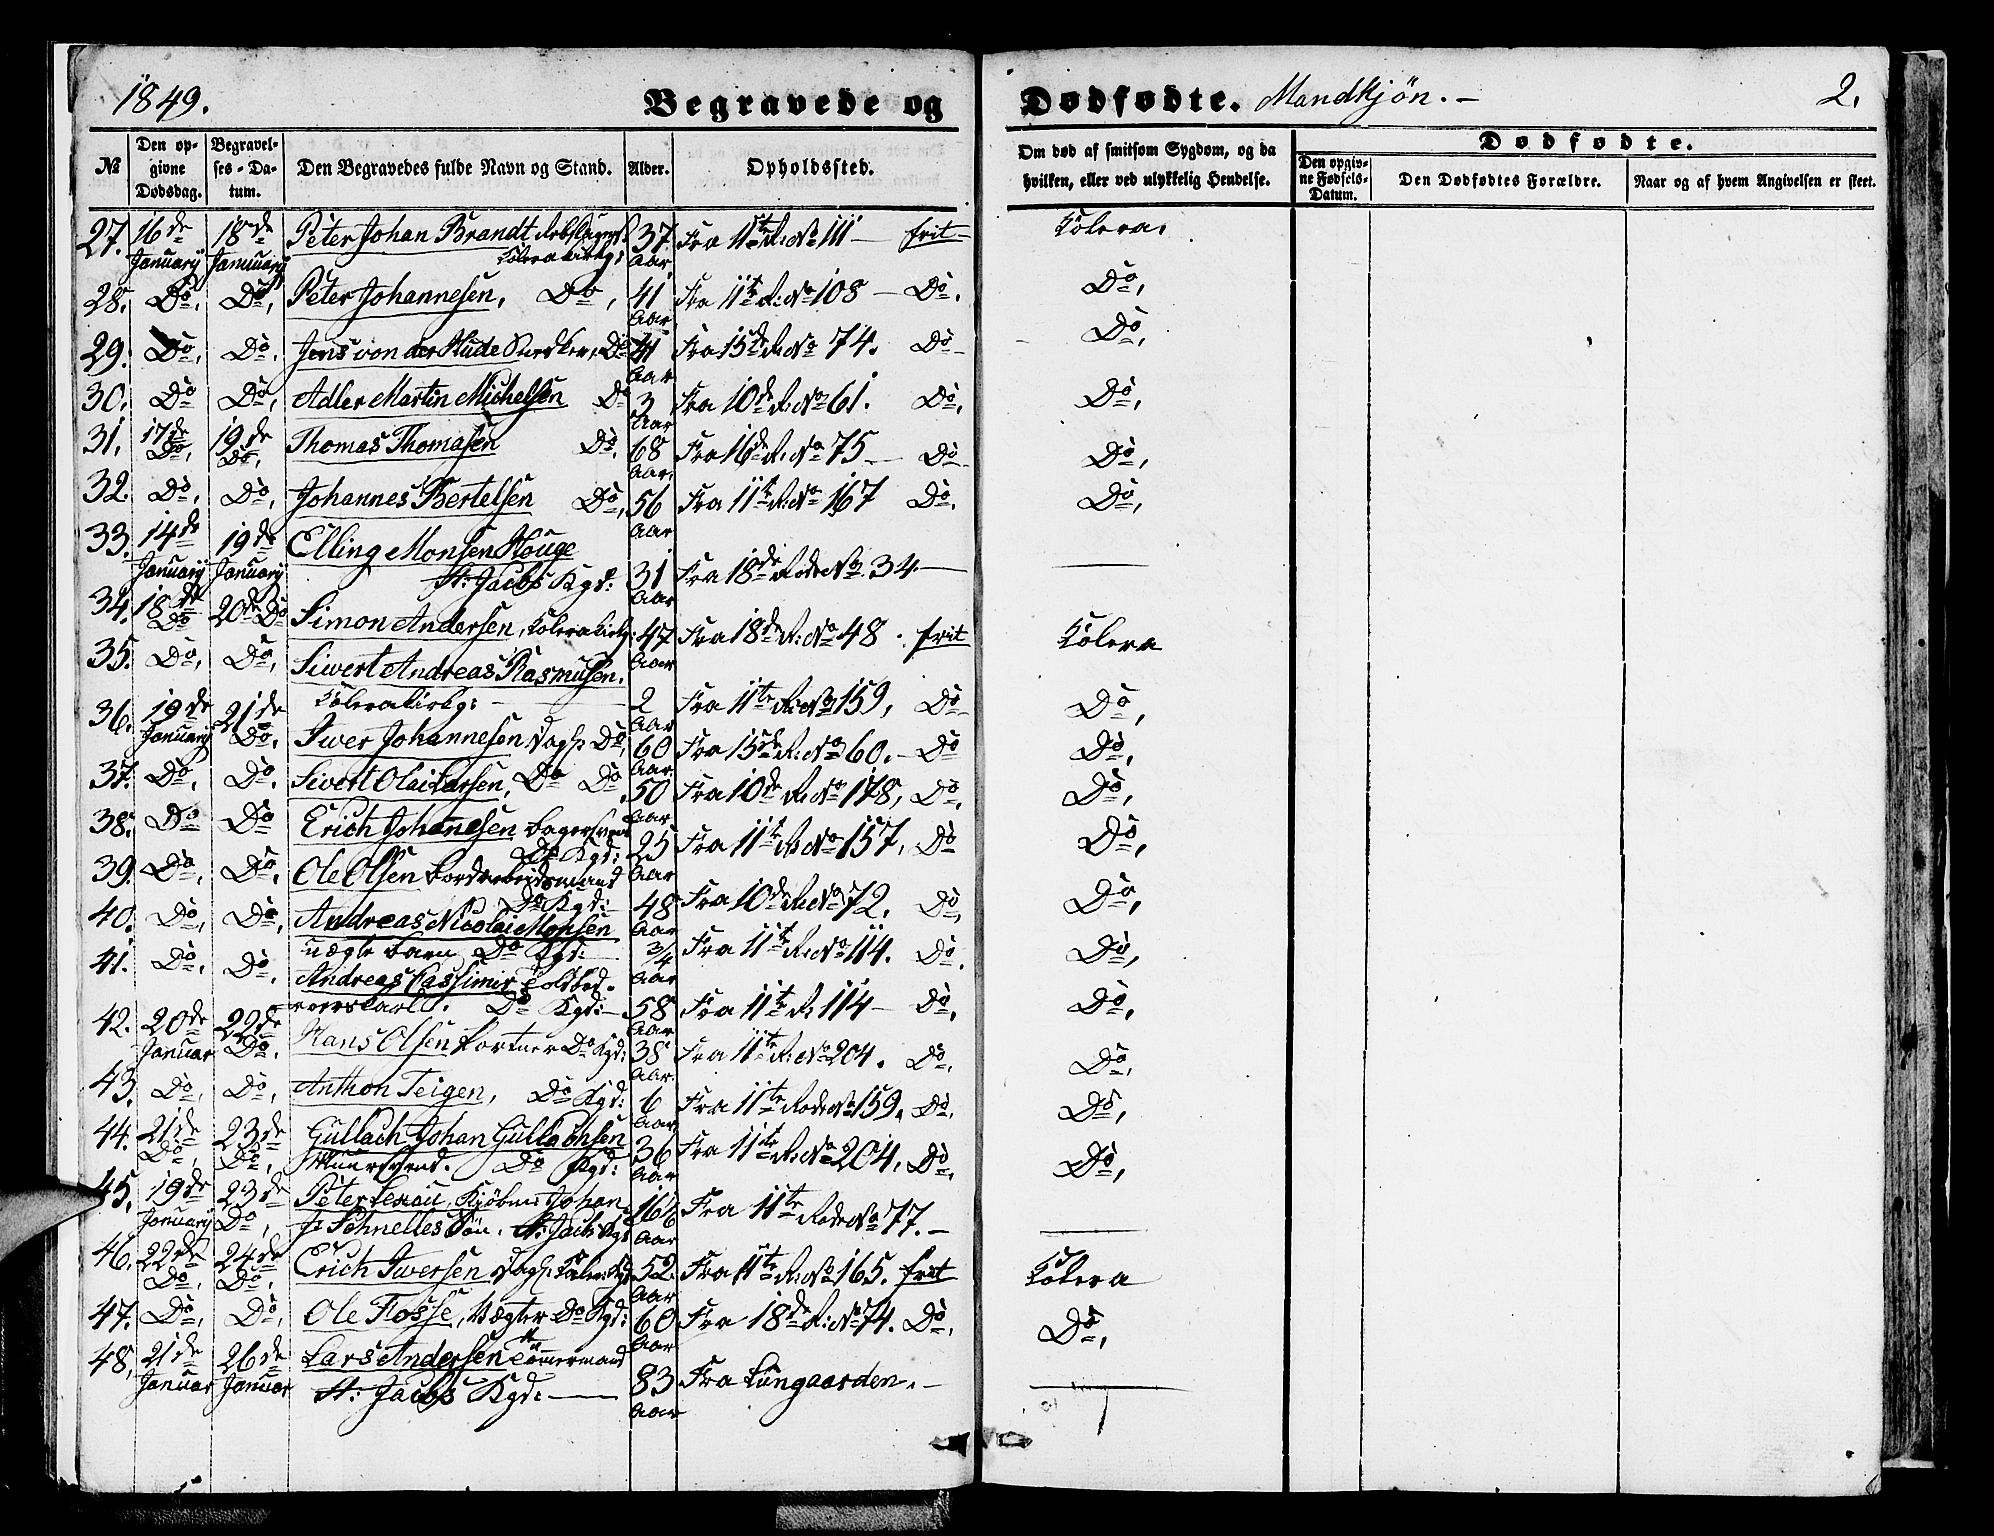 1849.
Begravede og Dødfødte. Mandkjøn. –
2.
№ Den opgivne Dødsdag. Begravelses-Datum. Den Begravedes fulde Navn og Stand. Alder. Opholdssted. Om død af smitsom Sygdom, og da hvilken, eller ved ulykkelig Hendelse.
Dødfødte.
Den opgivne Fødsels-Datum. Den Dødfødtes Forældre. Naar og af hvem Angivelsen er skeet.
27. 16de 18de Peter Johan Brandt 37 Fra 11te R: No 111 — frit — Kolera,
Januarij Januarij Kolera Kirkg: Aar
28. Do, Do, Peter Johannesen, Do, 41 Fra 11te R: No 108 — Do. Do,
Aar
29. Do, Do. Jens von der Hude Snedker, Do 41 Fra 15de R: No 74. Do — Do,
Aar
30. Do Do, Adler Martin Michelsen Do 3 Fra 10de R: No 61. Do, Do,
Aar
31. 17de 19de Thomas Thomasen Do, 68 Fra 16de R: No 75 — Do — Do,
Do, Do, Aar,
32. Do, Do, Johannes Bertelsen Do, 56 Fra 11te R: No 167 Do. Do,
Aar
33. 14de 19de Elling Monsen Houge
Januarij Januarij St: Jacobs Kgd: 31 Fra 18de Rode No 34. —
Aar
34. 18de 20de Do Simon Andersen, Kolera Kirkg: 47 Fra 18de R: No 48. frit Kolera
Do Aar
35. Do, Do, Siwert Andreas Rasmusen.
Kolera Kirkg: — 2 Fra 11te R: No 159, Do — Do,
Aar
36. 19de 21de Iwer Johannesen Dags: Do, 60 Fra 15de R: No 60. — Do Do,
Januarij Do. Aar
37. Do. Do. Siwert Olai Larsen, Do Do 50 Fra 10de R: No 178, Do. Do,
Aar
38. Do Do Erich Johannesen Bagersvend 25 Fra 11te R: No 157, Do Do,
Do Kgd: Aar
39. Do, Do, Ole Olsen Bordarbeidsmand
Do Kgd: 48 Fra 10de R: No 72. Do, Do,
Aar
40. Do, Do, Andreas Nicolai Monsen
uægte barn Do Kgd: 3/4 Fra 11te R: No 114. Do. Do,
Aar
41. Do, Do. Andreas Cassimir
Do Kgd: — 58 Fra 11te R: 114 — Do, Do,
Aar
42. 20de 22de Hans Olsen Do Kgd: 38 Fra 11te R: No 204. Do, Do,
Januar Do. Aar.
43. Do, Do, Anthon Teigen, Do Kgd: 6 Fra 11te Rode No 159. Do, Do,
Aar,
44. 21de 23de Gullach Johan Gullachsen 36 Fra 11te R: No 204. Do, Do,
Do, Do, Muursvend. Do Kgd: Aar
45. 19de 23de Peter Lexau, Kjøbm: Johan 16 Fra 11te Rode No 77. —
Januarij Do, J: Schnelles Søn. St: Jacobs Kgd Aar
46. 22de 24de Erich Iwersen Dags: Kolera Kgd 52. Fra 11te R: No 165. frit Kolera
Do, Do. Aar
47. Do, Do, Ole Fosse, Vægter Do Kgd: 60 Fra 18de R: No 74. Do, Do,
Aar
48, 21de 26de Lars Andersen Tømmermand
Januar Januar St: Jacobs Kgd: — 83 Fra Lungaarden. —
Aar